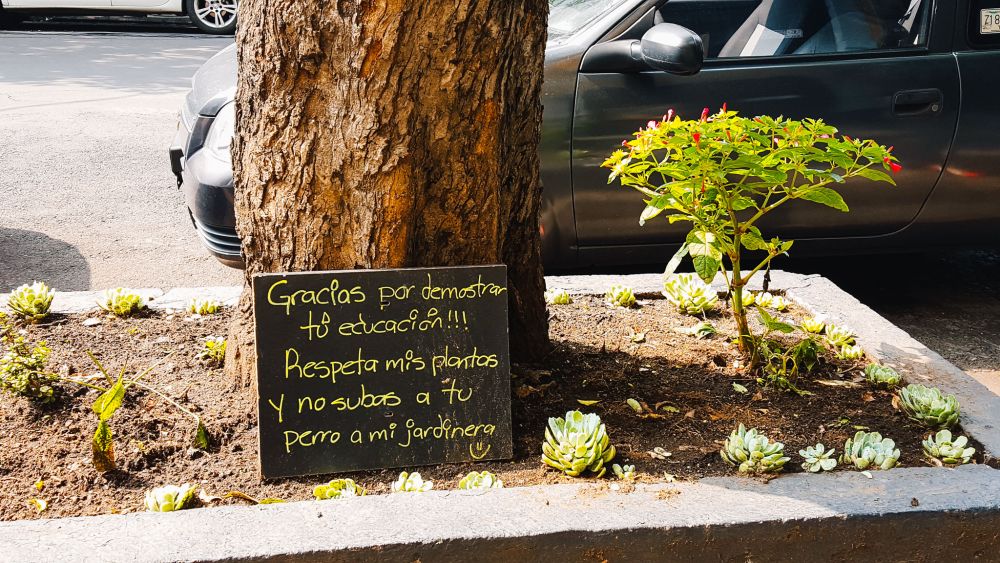 Gracias por demostrar
tú educación!!!
Respeta mis plantas
y no subas a tu
perro a mi jardinera